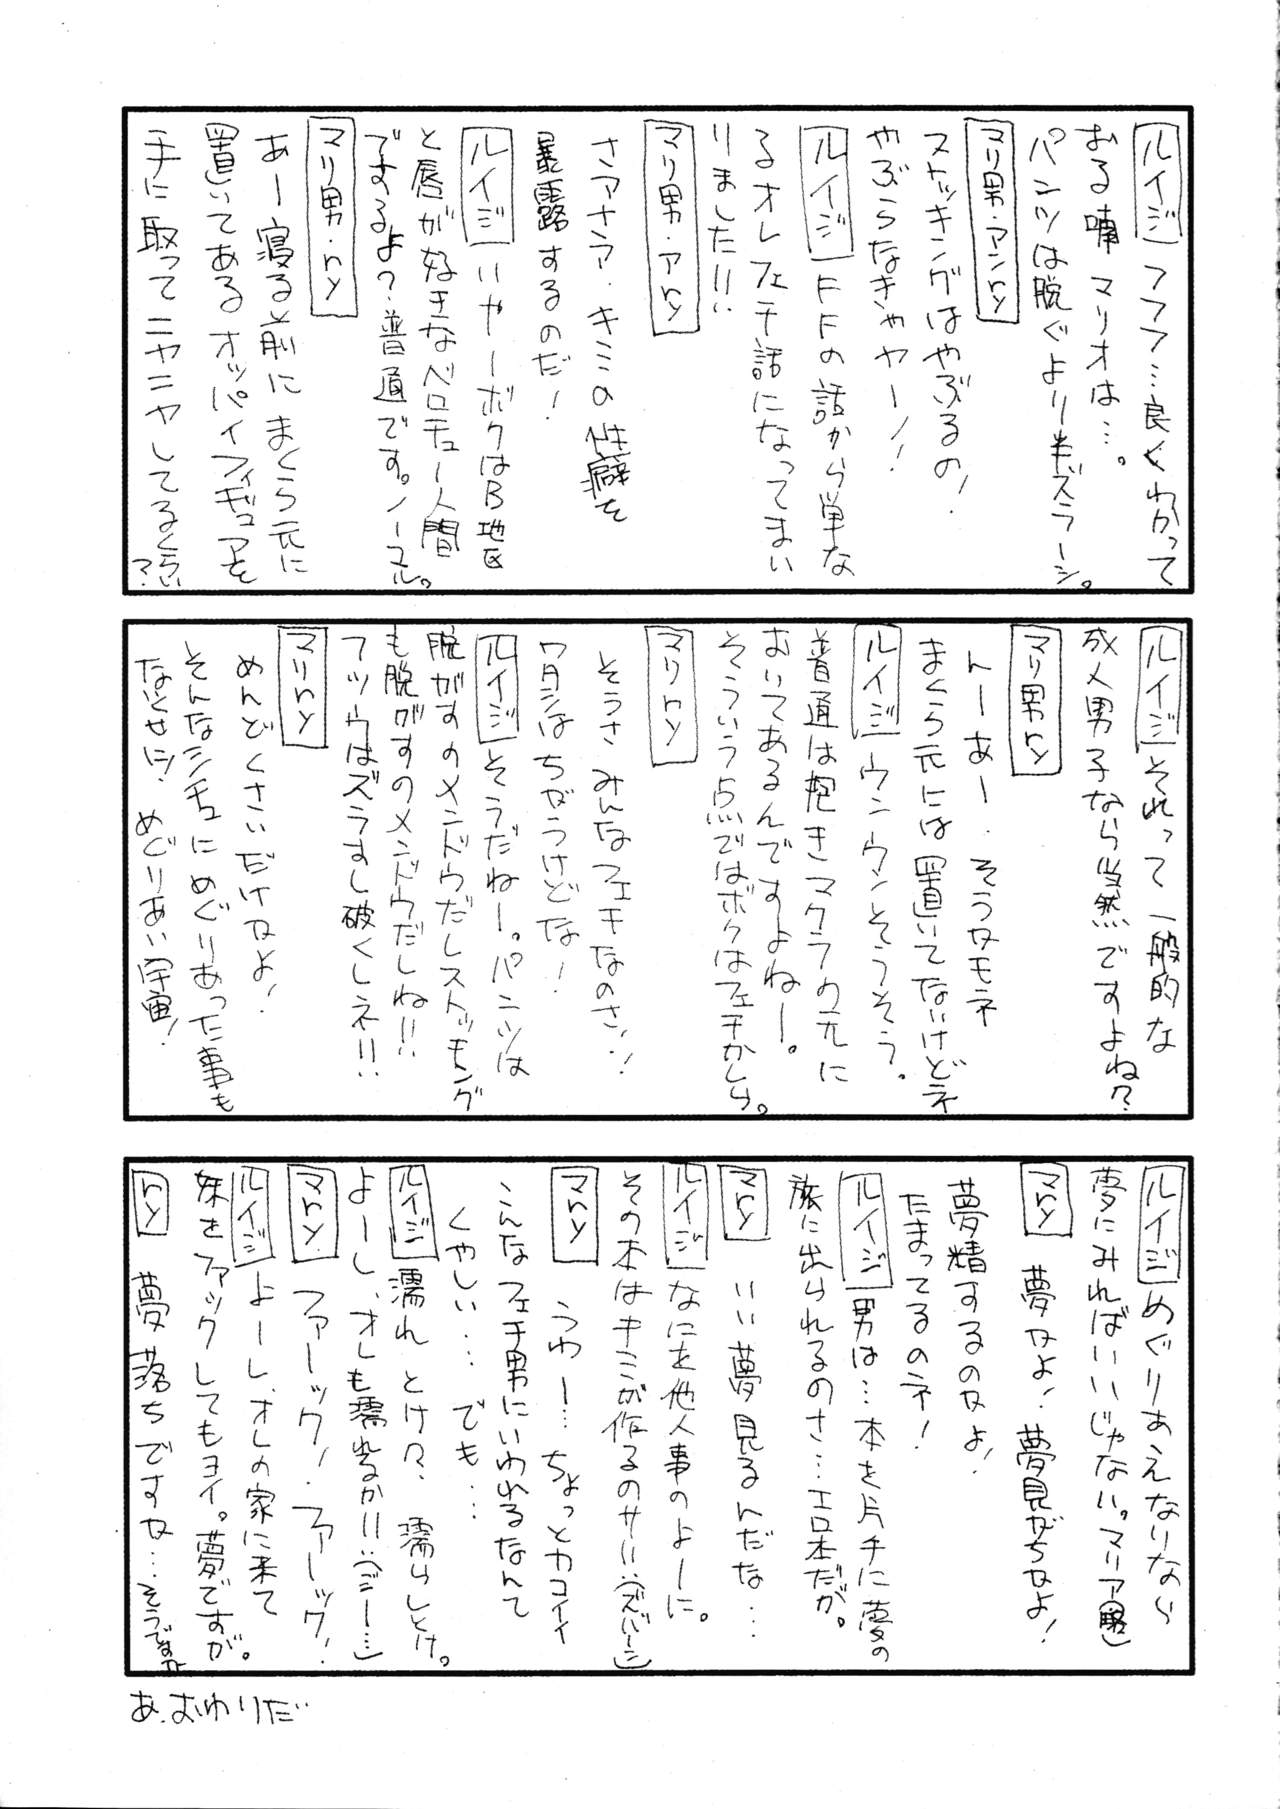 ルイジ フフフ…良くわかって
おる喃 マリオは…。
パンツは脱ぐより半ズラーシ。
マリ男・アンry
ストッキングはやぶるの!
やぶらなきゃヤー!!
ルイジ FFの話から単な
るオレフェチ話になってまい
りました!!
マリ男・アry
さアさア・キミの性癖を
暴露するのだ!
ルイジ いやーボクはB地区
と唇が好きなベロチュー人間
ですよ?普通です。ノーマル。
マリ男・ry
あー寝る前にまくら元に
置いてあるオッパイフィギュアを
手に取ってニヤニヤしてるくらい
?
ルイジ それって一般的な
成人男子なら当然ですよね?
マリ男ry
んーあー・そうなモネ
まくら元には置いてないけどネ
ルイジ ウンウンそうそう。
普通は抱きマクラの元に
おいてあるんですよねー。
そういう点ではボクはフェチかしら。
マリry
そうさみんなフェチなのさ!
ワタシはちがうけどな!
ルイジ そうだねー。パンツは
脱がすのメンドウだしストッキング
も脱がすのメンドウだしね!!
フツウはズラすし破くしネ!!
マリry
めんどくさいだけかよ!
そんなシチュにめぐりあった事も
ないくせに!めぐりあい宇宙!
ルイジ めぐりあえないなら
夢にみればいいじゃない。マリア(略)
マry 夢かよ!夢見がちかよ!
夢精するのかよ!
たまってるのネ!
ルイジ 男は…本を片手に夢の
旅に出られるのさ…エロ本だが。
マry いい夢見るんだな…
ルイジ なにを他人事のよーに。
その本はキミが作るのサ!!(ズバーン)
マry うわー…ちょっとカコイイ
こんなフェチ男にいわれるなんて
くやしい…でも…
ルイジ 濡れとけ々、濡らしとけ。
よーし、オレも濡れるか!!(ジー…)
マry ファーック!ファーック!
ルイジ よーし、オレの家に来て
妹をファックしてもヨイ。夢ですが。
ry 夢落ちですか…そうですか
あ、おわりだ